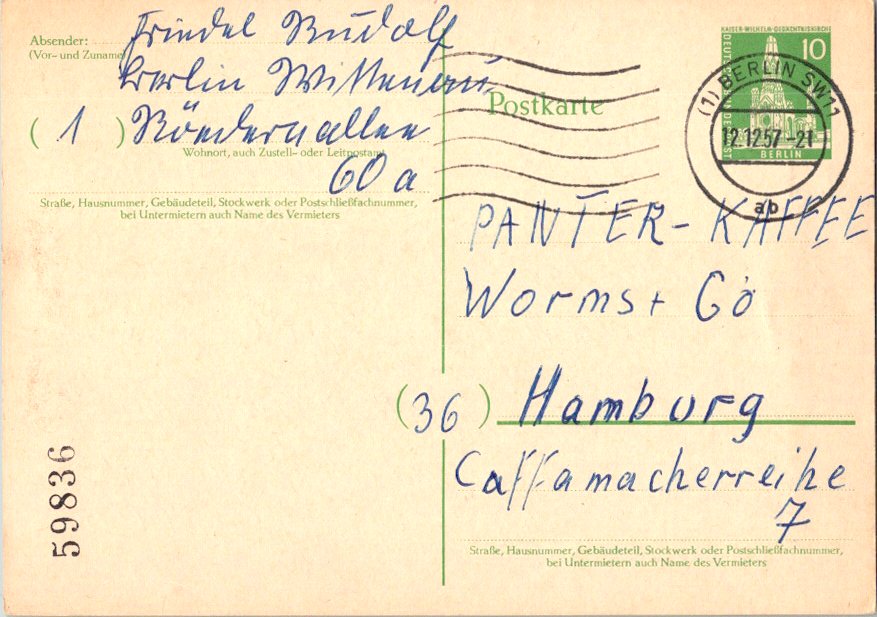 Absender: Friedel Rudolf
(Vor- und Zuname)
Berlin Wittenau
( 1 ) Roedernallee
Wohnort, auch Zustell- oder Leitpostamt
60 a
Straße, Hausnummer, Gebäudeteil, Stockwerk oder Postschließfachnummer,
bei Untermietern auch Name des Vermieters
59836
KAISER-WILHELM-GEDÄCHTNISKIRCHE
10
DEUTSCHE BUNDESPOST
BERLIN
(1) BERLIN SW11
12.12.57.-21
ab
Postkarte
PANTER-KAFFEE
Worms + Cö
(36) Hamburg
Caffamacherreihe
7
Straße, Hausnummer, Gebäudeteil, Stockwerk oder Postschließfachnummer,
bei Untermietern auch Name des Vermieters